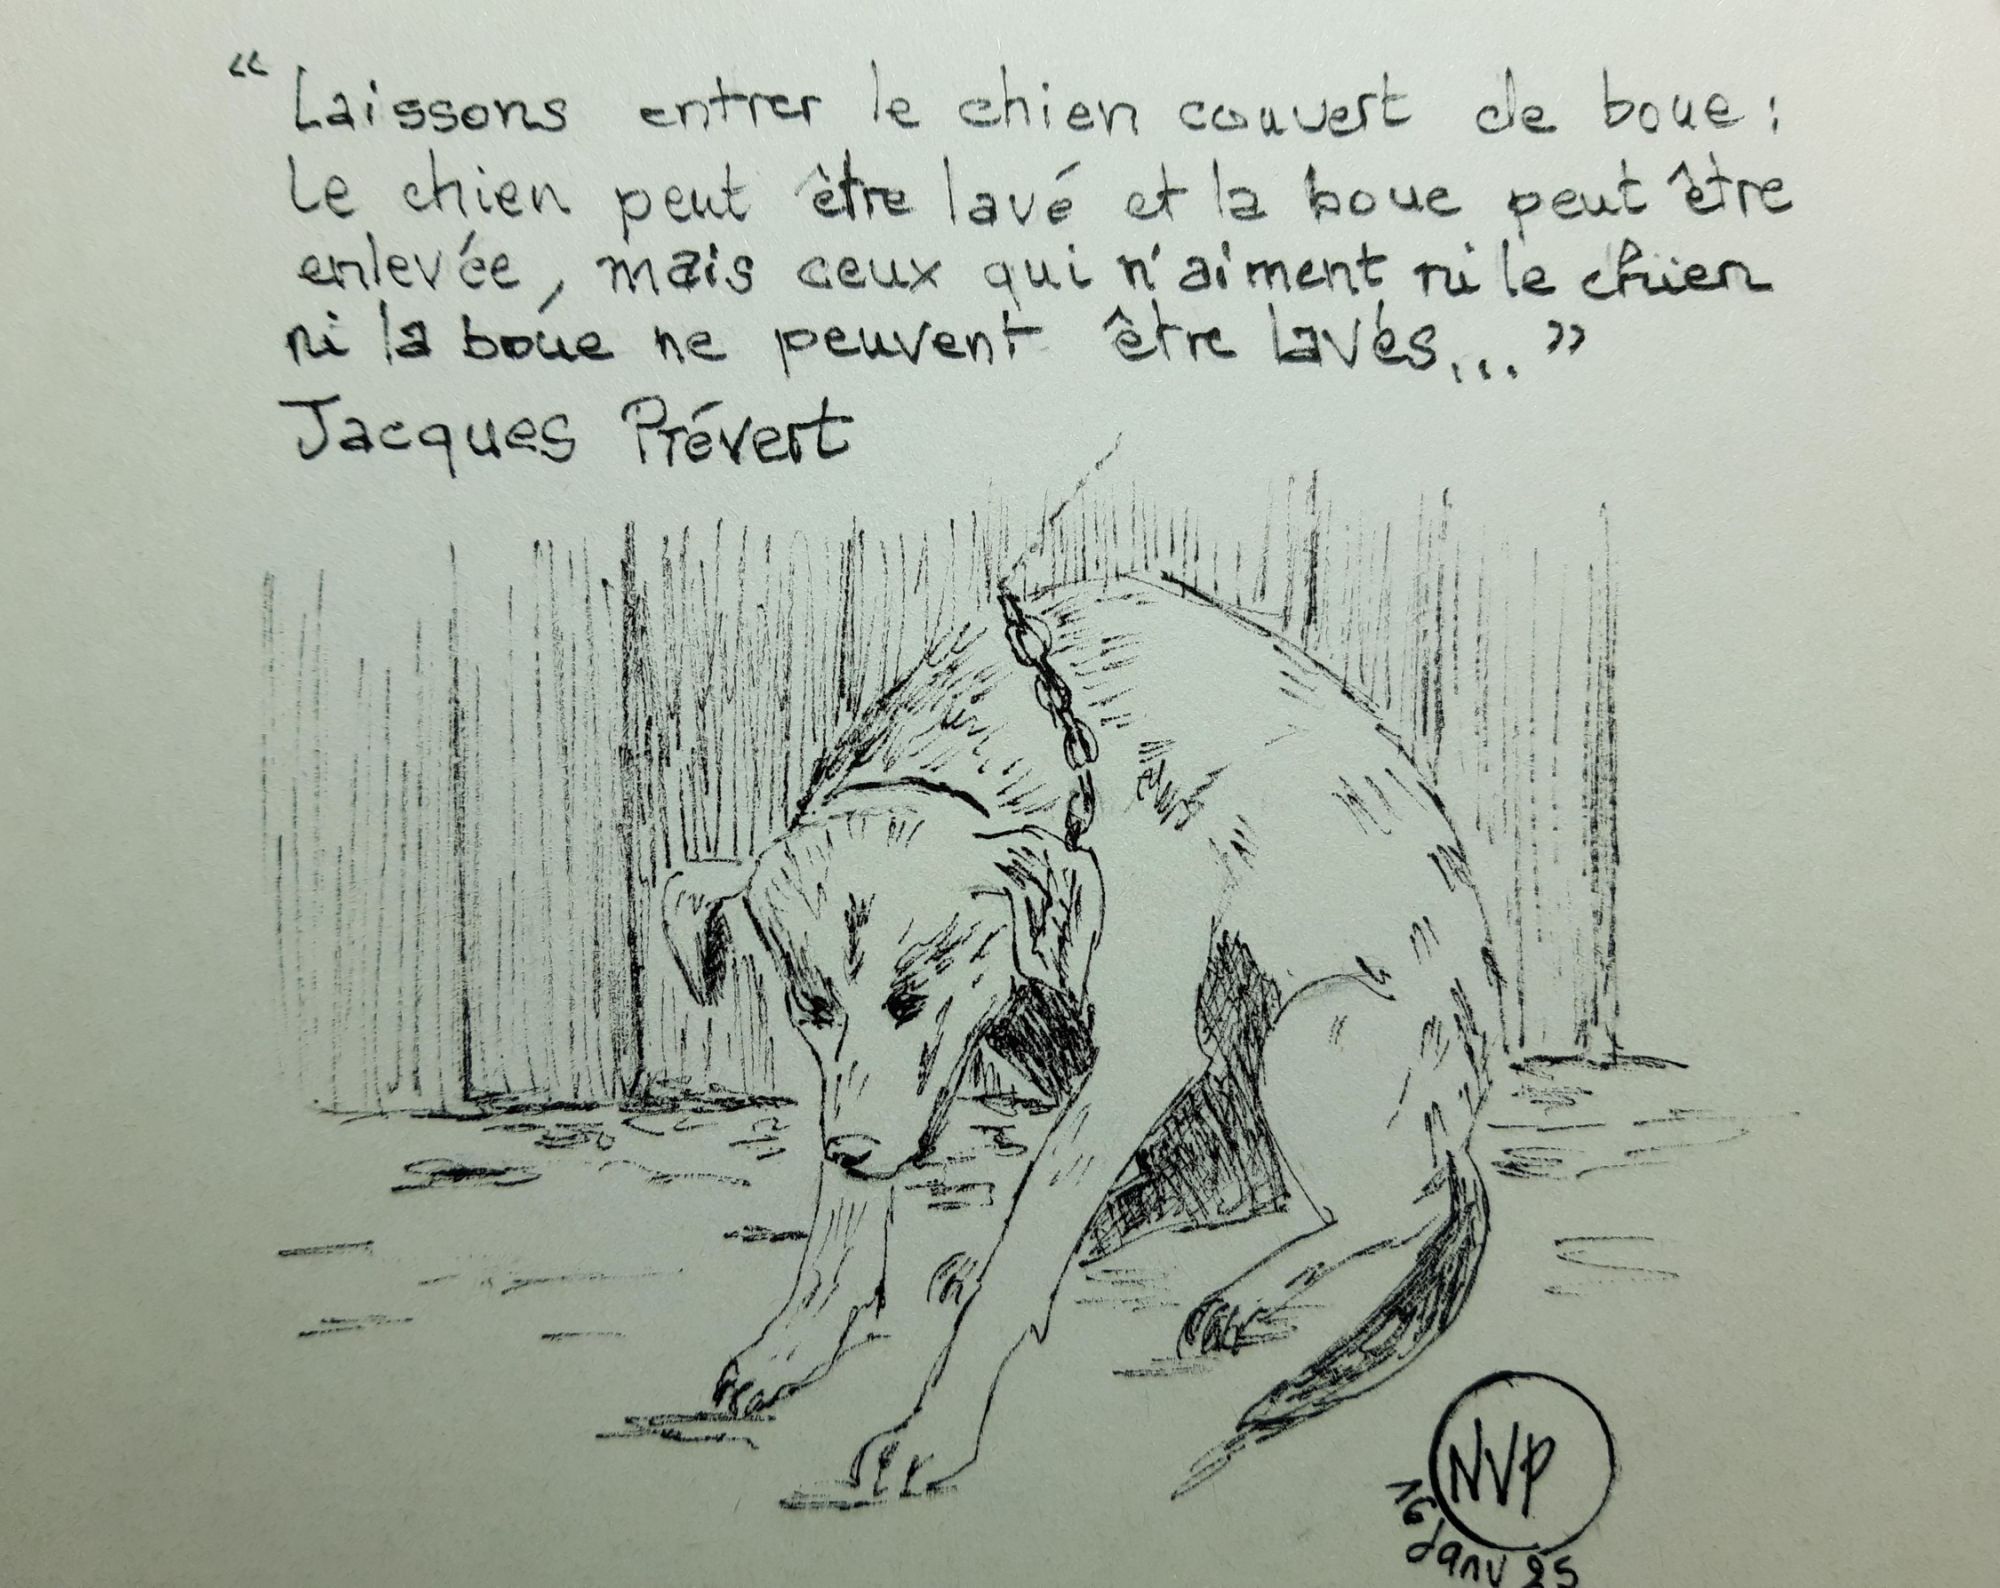 “ Laissons entrer le chien couvert de boue :
Le chien peut être lavé et la boue peut être
enlevée, mais ceux qui n'aiment ni le chien
ni la boue ne peuvent être lavés... ”
Jacques Prévert
NVP
16 Janv 25